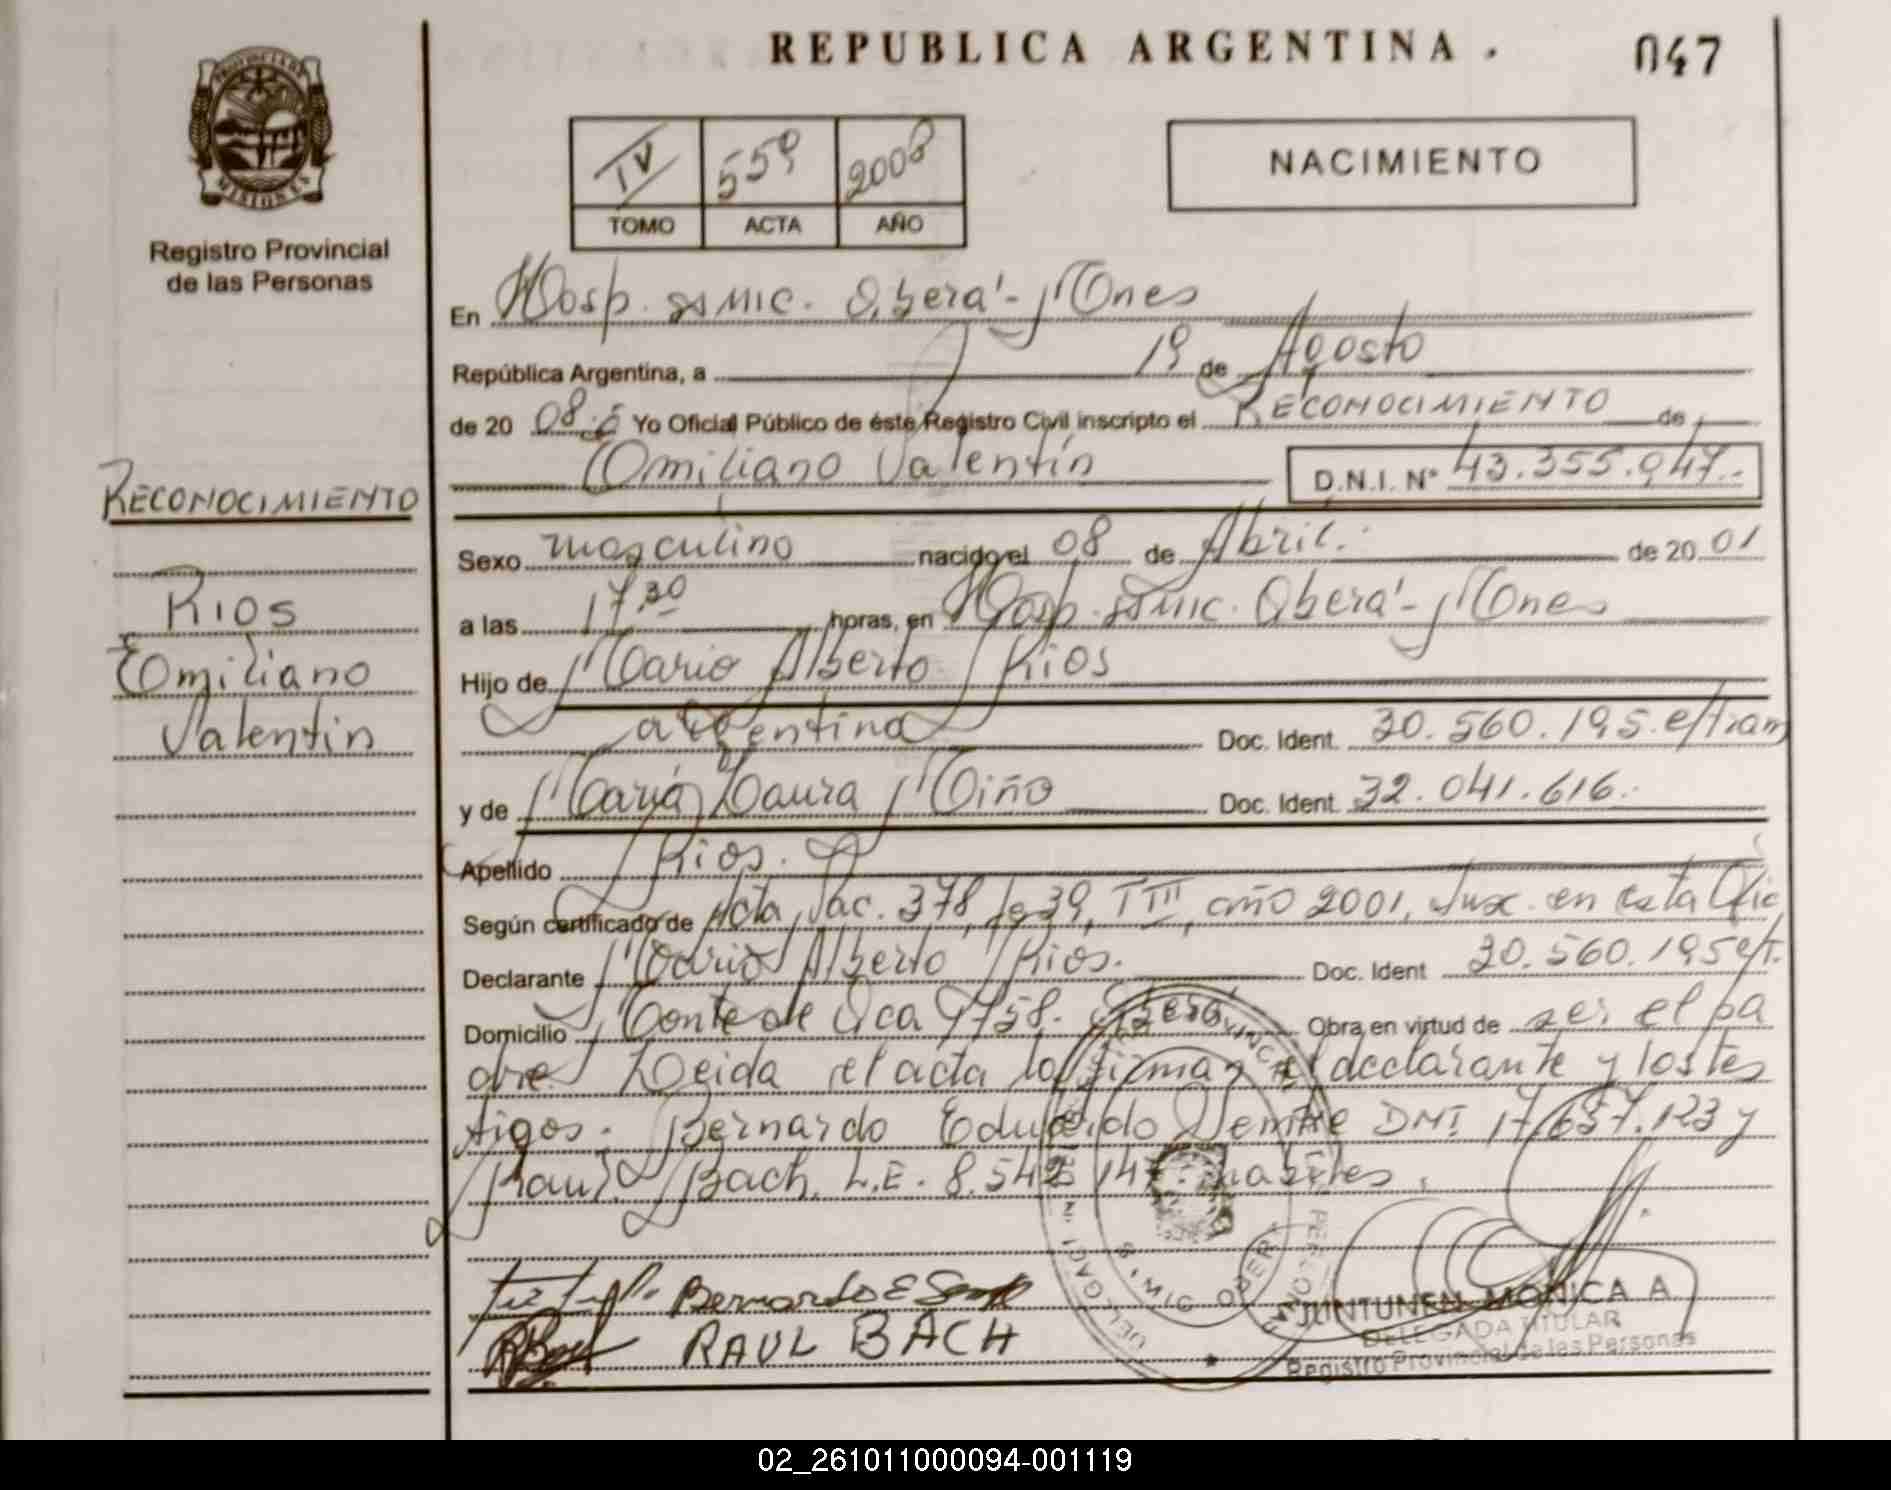 REPUBLICA ARGENTINA.
047
PROVINCIA DE MISIONES
Registro Provincial
de las Personas
IV 559 2008
TOMO ACTA AÑO
NACIMIENTO
En Hosp. SAMIC. Oberá - Mnes
República Argentina, a 19 de Agosto
de 20 08 Yo Oficial Público de éste Registro Civil inscripto el RECONOCIMIENTO de
Emiliano Valentín D.N.I. N° 43.355.947.-
RECONOCIMIENTO
Rios
Emiliano
Valentin
Sexo masculino nacido el 08 de Abril. de 20 01
a las 17,30 horas, en Hosp. SAMIC. Oberá - Mnes
Hijo de Mario Alberto Rios
argentina Doc. Ident. 30.560.195. e/tram
y de María Laura Miño Doc. Ident. 32.041.616.
Apellido Rios.
Según certificado de Acta Nac. 378, Fo 39, T III, año 2001, Insc. en esta Ofic
Declarante Mario Alberto Rios. Doc. Ident 30.560.195 e/t.
Domicilio Montes de Oca 1758. Oberá Obra en virtud de ser el pa
dre. Leida el acta la firman el declarante y los tes
tigos: Bernardo Eduardo DNI 17.657.123 y
Raul Bach. L.E. 8.542.147. habiles.
Bernardo E
RAUL BACH
SAMIC OBERA
JUNTUNEN MONICA A
DELEGADA TITULAR
Registro Provincial de las Personas
02_261011000094-001119